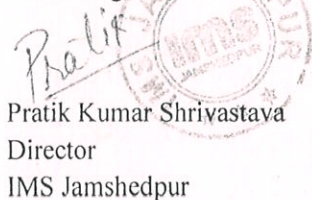 Pratik
ims
JAMSHEDPUR
Pratik Kumar Shrivastava
Director
IMS Jamshedpur